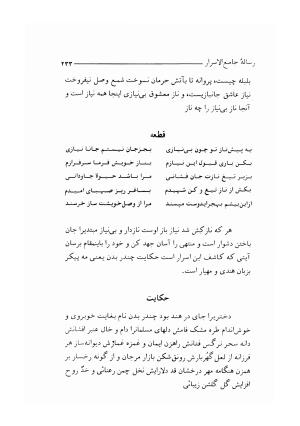 رسالهٔ جامع‌الاسرار ۲۳۳
بلبله چیست، پروانه تا بآتش حرمان نسوخت شمع وصل نیفروخت
نیاز عاشق جانبازیست، و ناز معشوق بی‌نیازی اینجا همه نیاز است و
آنجا ناز بی‌نیاز را چه ناز
قطعه
به پیش ناز تو چون بی‌نیازی بجزجان نیستم جانا نیازی
بکن بازی قبول این نیازم بناز خویش فرما سرفرازم
بزیر تیغ نازت جان فشانی مرا باشد حیوة جاودانی
بکش از ناز تیغ و کن شهیدم بساغر ریز صهبای امیدم
مرا از وصل خویشت ساز خرسند
هر که نازکش شد نیاز باز اوست نازدار و بی‌نیاز مبتدیرا جان
باختن دشوار است و منتهی را آسان جهد کن و خود را باینمقام برسان
آیتی که کاشف این اسرار است حکایت چندر بدن یعنی مه پیکر
بزبان هندی و مهیار است.
حکایت
دختریرا جای در هند بود چندر بدن نام بغایت خوبروی و
خوش‌اندام طره مشک فامش دلهای مسلمانرا دام و خال عنبر افشانش
دانه سحر نرگس فتانش راهزن ایمان و غمزه غمازش دیوانه‌ساز هر
فرزانه از لعل گهربارش رونق‌شکن بازار مرجان و از گونه رخسار بر
همزن هنگامه مهر درخشان قد دلارایش نخل چمن رعنائی و خد روح
افزایش گل گلشن زیبائی